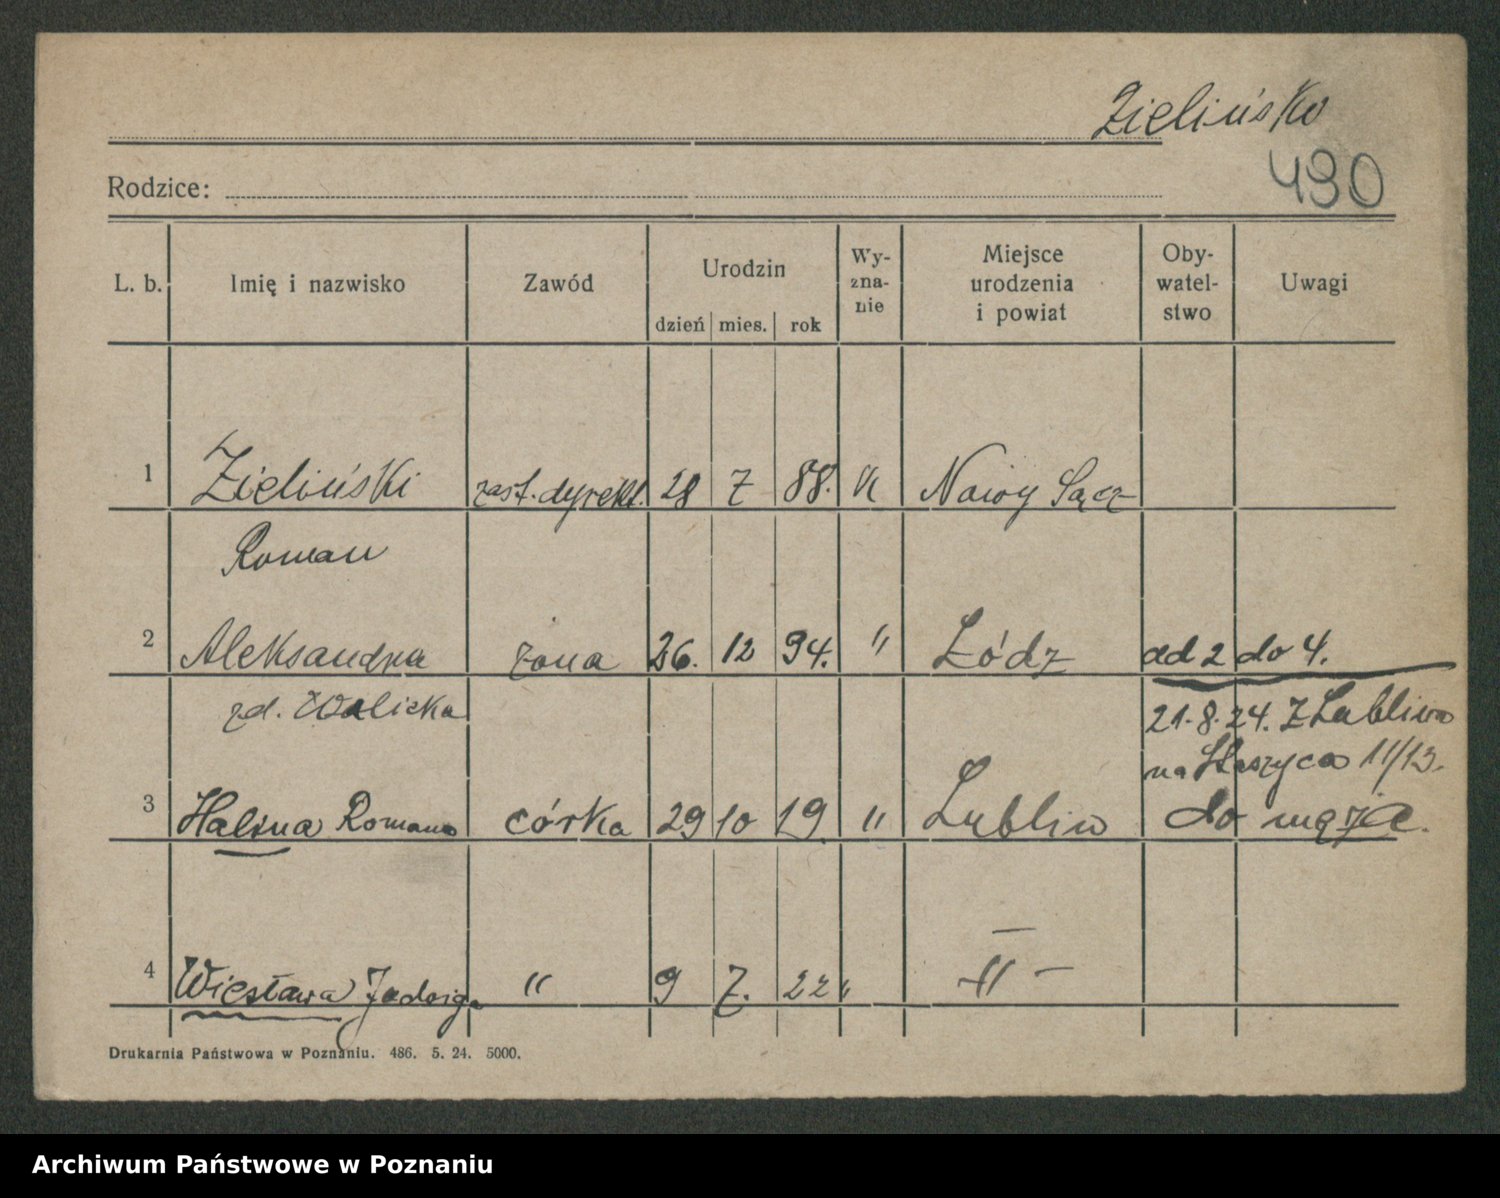 Zielińsko
490
Rodzice:
L. b. Imię i nazwisko Zawód Urodzin dzień mies. rok Wy-zna-nie Miejsce urodzenia i powiat Oby-watel-stwo Uwagi
1 Zieliński zast. dyrekt. 28 7 88. K Nowy Sącz
Roman
2 Aleksandra żona 26. 12 94. " Łódz ad 2 do 4.
zd. Walicka
21.8.24. Z Lublina
na Staszyca 11/13.
3 Halina Romana córka 29 10 19. " Lublin do męża.
4 Wiesława Jadwiga " 9 7. 22 " — " —
Drukarnia Państwowa w Poznaniu. 486. 5. 24. 5000.
Archiwum Państwowe w Poznaniu